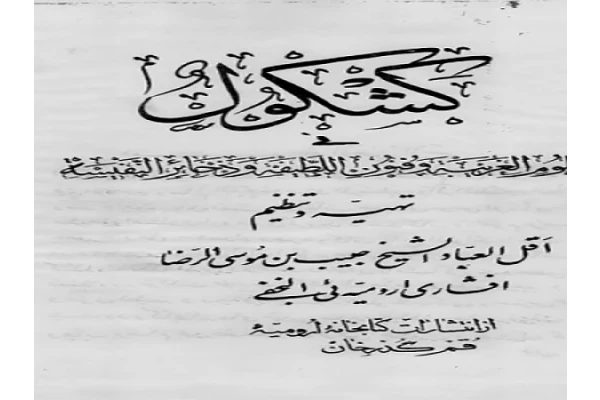 كشكول
في
العلوم الغريبة وفنون اللطيفة وذخائر النفيسة
تهيه وتنظيم
اقل العباد الشيخ حبيب بن موسى الرضا
افشاری ارومیه ئی النجفی
از انتشارات کتابخانه ارومیه
قم گذرخان